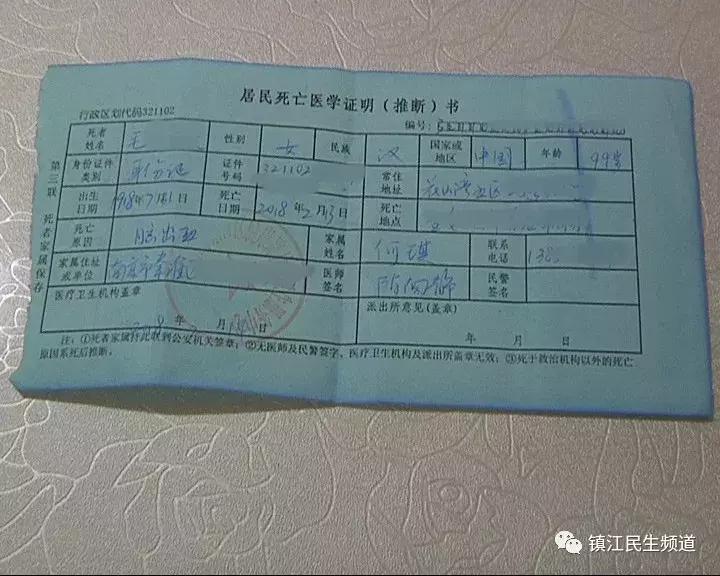 居民死亡医学证明（推断）书
行政区划代码321102
编号:
第三联 死者家属保存
死者姓名 毛 性别 女 民族 汉 国家或地区 中国 年龄 99岁
身份证件类别 身份证 证件号码 321102 常住地址 花山湾五区
出生日期 1918年7月1日 死亡日期 2018年2月13日 死亡地点
死亡原因 脑出血 家属姓名 何琪 联系电话 138
家属住址或单位 南京市秦淮 医师签名 民警签名
医疗卫生机构盖章 派出所意见(盖章)
2018 年 月 日 年 月 日
注: ①死者家属持此联到公安机关签章; ②无医师及民警签字、医疗卫生机构及派出所盖章无效; ③死于救治机构以外的死亡
原因系死后推断。
镇江民生频道